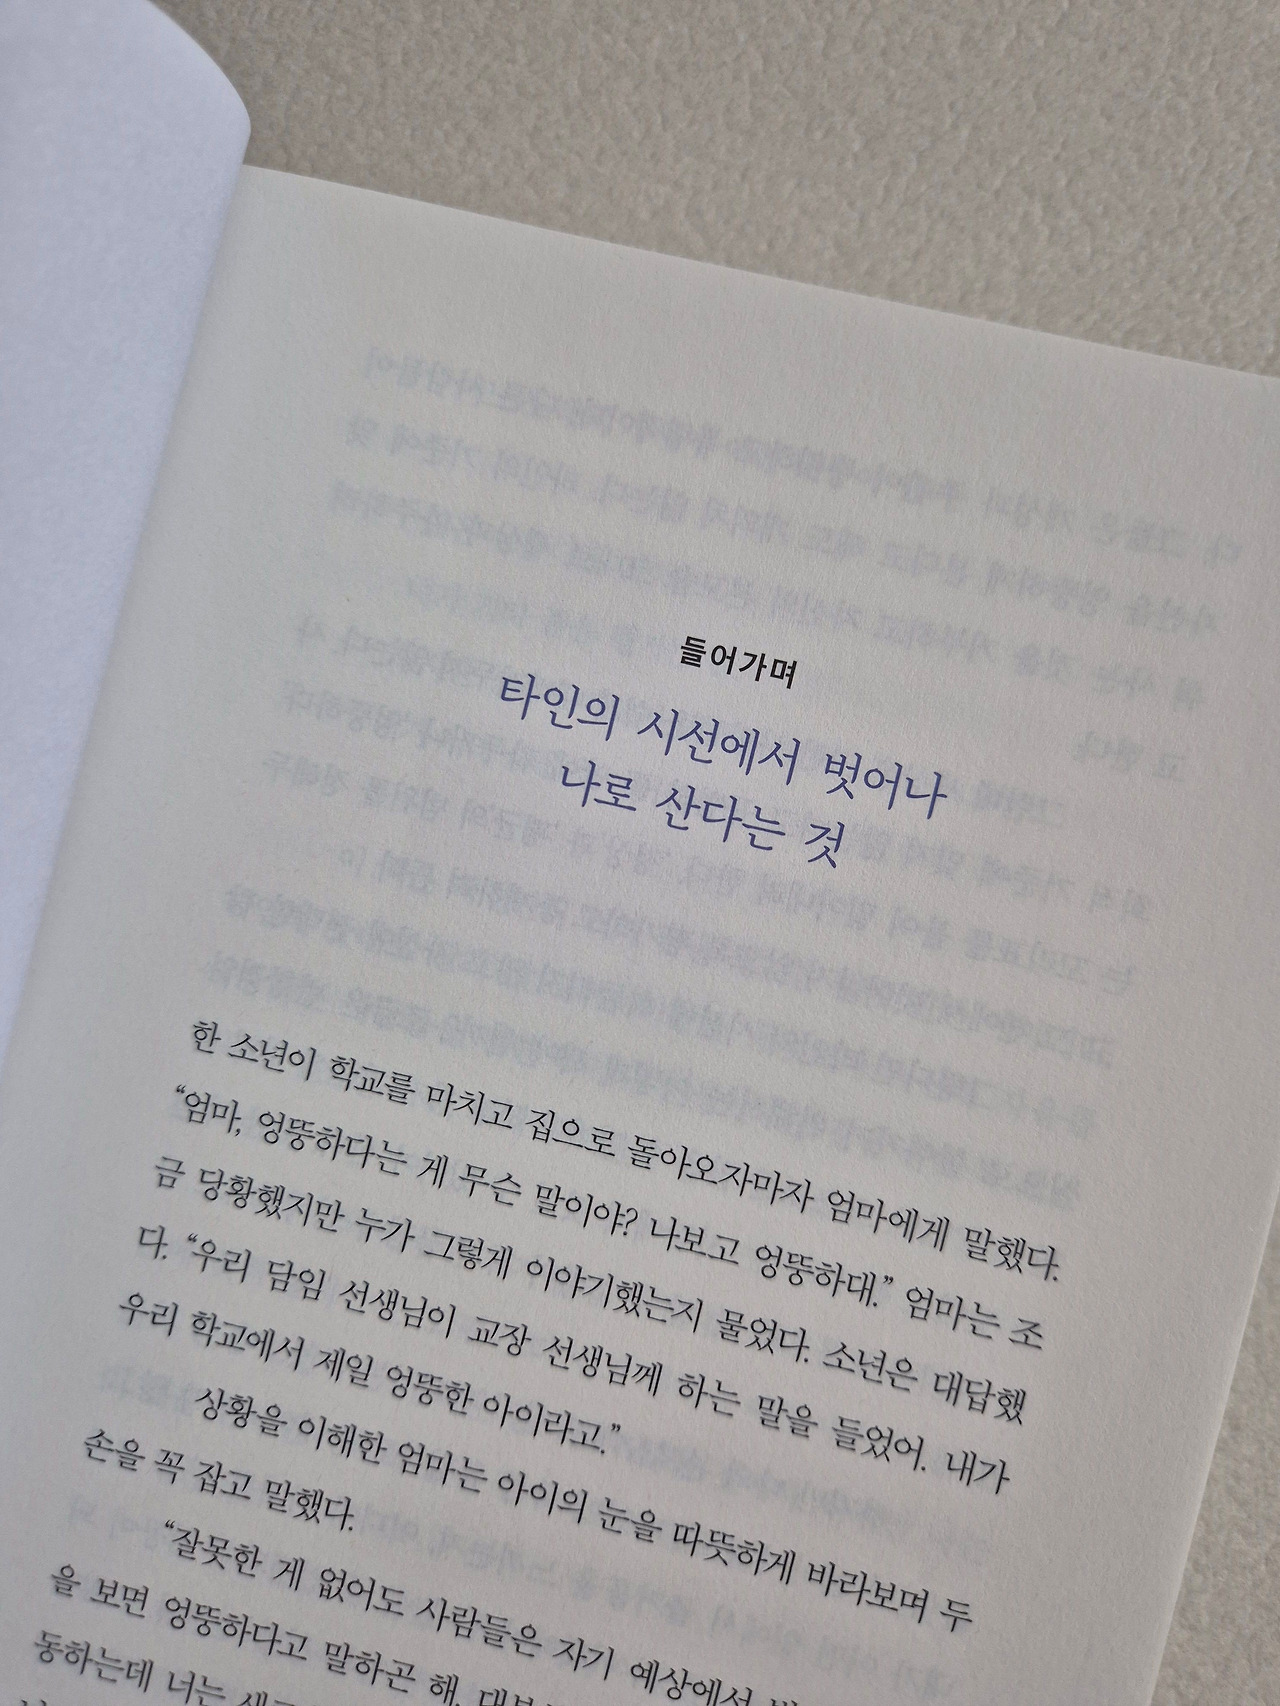 들어가며
타인의 시선에서 벗어나
나로 산다는 것
한 소년이 학교를 마치고 집으로 돌아오자마자 엄마에게 말했다.
“엄마, 엉뚱하다는 게 무슨 말이야? 나보고 엉뚱하대.” 엄마는 조
금 당황했지만 누가 그렇게 이야기했는지 물었다. 소년은 대답했
다. “우리 담임 선생님이 교장 선생님께 하는 말을 들었어. 내가
우리 학교에서 제일 엉뚱한 아이라고.”
상황을 이해한 엄마는 아이의 눈을 따뜻하게 바라보며 두
손을 꼭 잡고 말했다.
“잘못한 게 없어도 사람들은 자기 예상에서
을 보면 엉뚱하다고 말하곤 해.
동하는데 너는